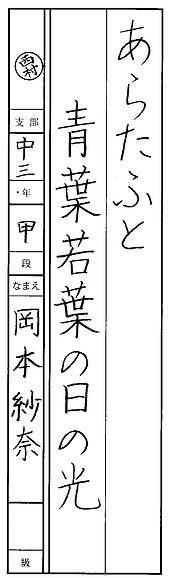 あらたふと
青葉若葉の日の光
西村
支部
中三
・年
甲
段
なまえ
岡本紗奈
級